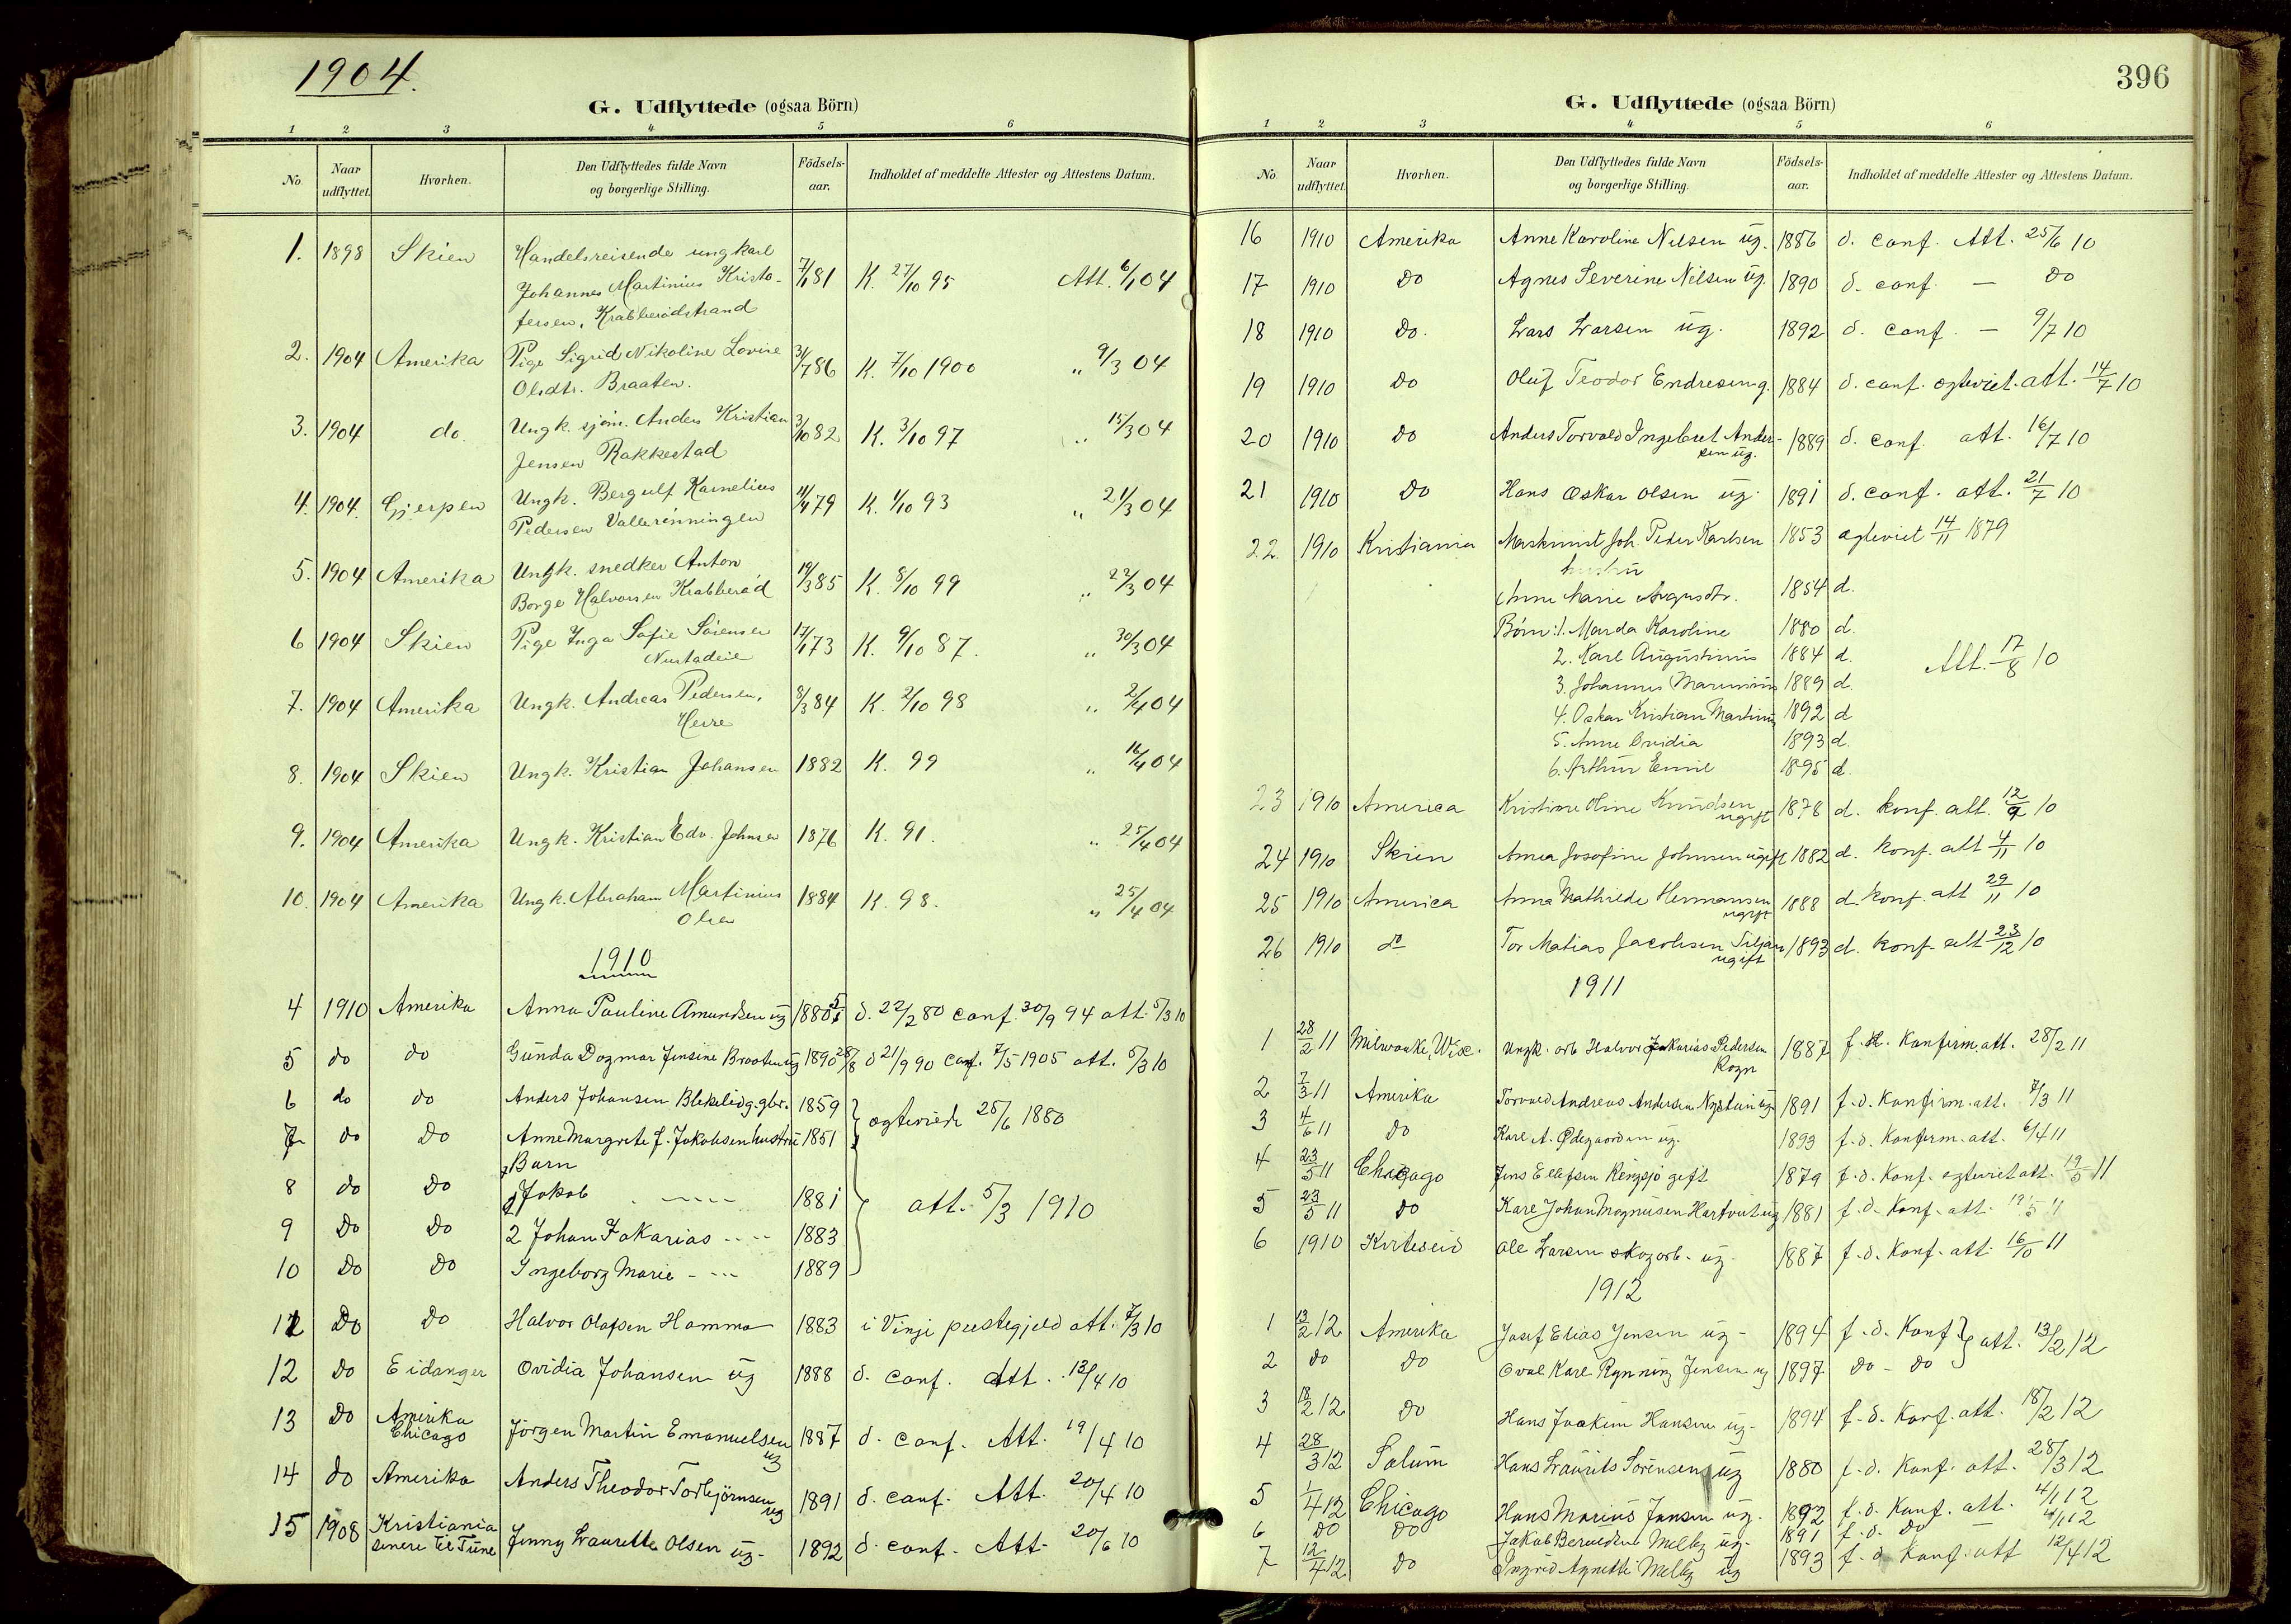 1904.
G. Udflyttede (ogsaa Börn)
1 2 3 4 5 6
No. Naar udflyttet. Hvorhen. Den Udflyttedes fulde Navn og borgerlige Stilling. Födsels-aar. Indholdet af meddelte Attester og Attestens Datum.
1. 1898 Skien Handelsreisende ungkarl
Johannes Martinius Kristo- 7/1 81 K. 27/10 95 Att. 6/1 04
fersen, Krabberødstrand
2. 1904 Amerika Pige Sigrid Nikoline Lovise 31/7 86 K. 7/10 1900 " 9/3 04
Olsdtr. Braaten.
3. 1904 do. Ungk. sjøm. Anders Kristian 3/10 82 K. 3/10 97 " 15/3 04
Jensen Rakkestad
4. 1904. Gjerpen Ungk. Bergulf Kornelius 11/4 79 K. 1/10 93 " 21/3 04
Pedersen Vallerønningen
5. 1904 Amerika Ungk. snedker Anton 19/3 85 K. 8/10 99 " 22/3 04
Borge Halvorsen Krabberød
6 1904 Skien Pige Inga Sofie Sörensen 17/1 73 K. 9/10 87. " 30/3 04
7. 1904 Amerika Ungk. Andreas Pedersen, 8/3 84 K. 2/10 98 " 2/4 04
Herre
8. 1904 Skien Ungk. Kristian Johansen 1882 K. 99 " 16/4 04
9. 1904 Amerika Ungk. Kristian Edv. Johnsen 1876 K. 91. " 25/4 04
10. 1904 Amerika Ungk. Abraham Martinius 1884 K. 98. " 25/4 04
Olsen
1910
4 1910 Amerika Anna Pauline Amundsen ug 1880 d. 22/2 80 conf. 30/9 94 att. 5/3 10
5 do do Gunda Dagmar Jensine Braaten ug 1890 28/8 d 21/9 90 conf. 7/5 1905 att. 5/3 10
6 do do Anders Johansen Blekelid g. gbr. 1859
7 do do Anne Margrete f. Jakobsen hustru 1851 egteviede 25/6 1880
Barn
8 do do 1 Jakob 1881 att. 5/3 1910
9 Do Do 2 Johan Zakarias 1883
10 Do Do Ingeborg Marie 1889
12 Do Do Halvor Olafsen Hamma 1883 i Vinje prestegjeld att. 7/3 10
12 Do Eidanger Ovidia Johansen ug 1888 d. conf. Att. 13/4 10
13 Do Amerika Chicago Jörgen Martin Emanuelsen ug 1887 d. conf. Att. 19/4 10
14 do Amerika Anders Theodor Torbjörnsen ug 1891 d. conf. Att. 20/4 10
15 1908 Kristiania senere til Tune Jenny Laurette Olsen ug. 1892 d. conf. Att. 20/6 10
396
G. Udflyttede (ogsaa Börn)
1 2 3 4 5 6
No. Naar udflyttet. Hvorhen. Den Udflyttedes fulde Navn og borgerlige Stilling. Födsels-aar. Indholdet af meddelte Attester og Attestens Datum.
16 1910 Amerika Anne Karoline Nilsen ug. 1886 d. conf. Att. 25/6 10
17 1910 Do Agnes Severine Nilsen ug. 1890 d. conf. — Do
18 1910 Do. Lars Larsen ug. 1892 d. conf. — 9/7 10
19 1910 Do Oluf Teodor Endresen g. 1884 d. conf. egteviet. att. 14/7 10
20 1910 Do Anders Torvald Ingebret Ander- 1889 d. conf. att. 16/7 10
sen ug.
21 1910 Do Hans Oskar Olsen ug. 1891 d. conf. att. 21/7 10
22. 1910 Kristiania Maskinist Joh. Peder Karlsen 1853 egteviet 14/11 1879
hustru
Anne Marie Augusdtr. 1854 d.
Børn: 1. Marda Karoline 1880 d.
2. Karl Augustinus 1884 d. Att. 17/8 10
3. Johannes Marinius 1889 d.
4. Oskar Kristian Martinius 1892 d
5. Anne Ovidia 1893 d.
6. Arthur Emil 1895 d.
23 1910 America Kristine Oline Knudsen ugift 1878 d. konf. att. 12/9 10
24 1910 Skien Anna Josofine Johnsen ugift 1882 d. konf. att 4/11 10
25 1910 America Anna Mathilde Hermansen ugift 1888 d. konf. att 29/11 10
26 1910 do Tor Matias Jacobsen Siljan ugift 1893 d. konf. att 23/12 10
1911
1 28/2 11 Milwauke, Wisc. Ungk. arb Halvor Zakarias Pedersen 1887 f. d. Konfirm. att. 28/2 11
Rogn
2 7/3 11 Amerika Torvald Andreas Andersen Nystuen ug 1891 f. d. Konfirm. att. 7/3 11
3 4/6 11 do Karl A. Ødegaarden ug. 1893 f. d. Konfirm. att. 6/4 11
4 23/5 11 Chicago Jens Ellefsen Ringsjø gift 1879 f. d. Konf. egteviet att. 19/5 11
5 23/5 11 do Karl Johan Magnusen Hartvit ug 1881 f. d. Konf. att. 19/5 11
6 1910 Kviteseid Ole Larsen skogarb. ug. 1887 f. d. Konf. att. 16/10 11
1912
1 13/2 12 Amerika Josef Elias Jensen ug 1894 f. d. Konf. att. 13/2 12
2 do do Oval Karl Rynning Jensen ug 1897 do - do
3 18/2 12 do Hans Joakim Hansen ug. 1894 f. d. Konf. att. 18/2 12
4 28/3 12 Solum Hans Laurits Sörensen ug 1880 f. d. Konf. att. 28/3 12
5 1/4 12 Chicago Hans Marius Jansen ug. 1892 f. d. Konf. att. 4/1 12
6 do do Jakob Melby ug. 1891 f. d. do — 4/1 12
7 12/4 12 do Ingrid Agnethe Melby ug 1893 f. d. Konf. att 12/4 12